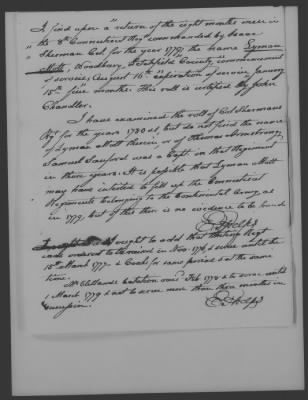 I find upon a return of the eight months men in
the 8th Connecticut Regt commanded by Isaac
Sherman Col. for the year 1779, the name Lyman
Mott, Woodbury Litchfield County, commencement
of service, August 16th expiration of service January
15th five months. This roll is certified by John
Chandler.
I have examined the roll of Col Shermans
Regt for the years 1780 & 81, but do not find the name
of Lyman Mott therein or of Thomas Armstrong,
Samuel Sanford was a Capt. in that Regiment
in those years. It is possible that Lyman Mott
may have enlisted to fill up the Connecticut
Regiments belonging to the Continental Army, as
in 1779, but of this there is no evidence to be found
in
Phelps
ought to add that
were ordered to in Nov. 1776 & serve until the
15th March 1777 & Cooks for same period & at the same
time.
Feb 1778 & to serve until
1 March 1779 & not to serve more than three months in
succession.
Phelps